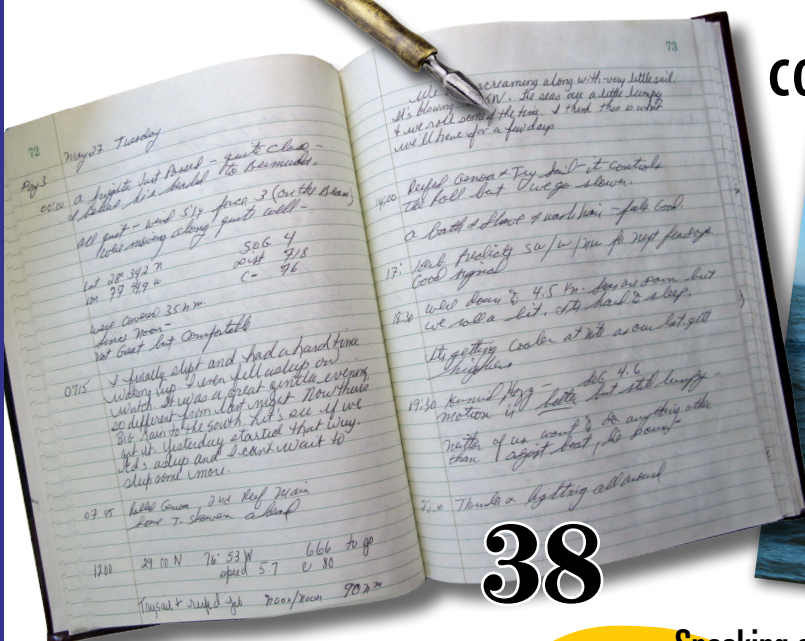 72
May 27 Tuesday
Day 3
00:00 a freighter Just Passed - quite close -
I believe he's headed to Bermuda.
all quiet - wind SW force 3 (on the Beam)
were moving along quite well -
Lat 28° 34.2 N SOG 4
Lon 77 49.9 W Dist 718
C - 76
weve covered 35 n.m.
since noon -
not Great but Comfortable
0715 I finally slept and had a hard time
waking up. I even fell asleep on
watch. It was a great gentle evening
so different from last night. Now there's
Big rain to the south. Let's see if we
get it. Yesterday started that way.
Ed's asleep and I can't wait to
sleep some more.
07 45 Rolled Genoa 2nd Reef Main
Some T. showers ahead
1200 29 00 N 76° 53 W 666 to go
speed 5.7 C 80
Trysail & reefed jib noon/noon 90 nm
73
We screaming along with very little sail.
It's blowing SW. The seas are a little lumpy
& we roll some of the time. I think this is what
we'll have for a few days
14:00 Reefed Genoa & Try Sail - it controls
the roll but we go slower.
a bath & shave & wash hair - feels Good.
17: Herb predicts SW/W/NW for next few days
Good signal
18:30 were down to 4.5 kn. Seas are down but
we roll a bit. It's hard to sleep.
Its getting cooler at nite as our lat gets
higher
19:30 SOG 4.6
motion is better but still lumpy -
neither of us want to do anything other
than adjust boat, lie down -
22:10 Thunder & lightning all around
38
CO
Speaking